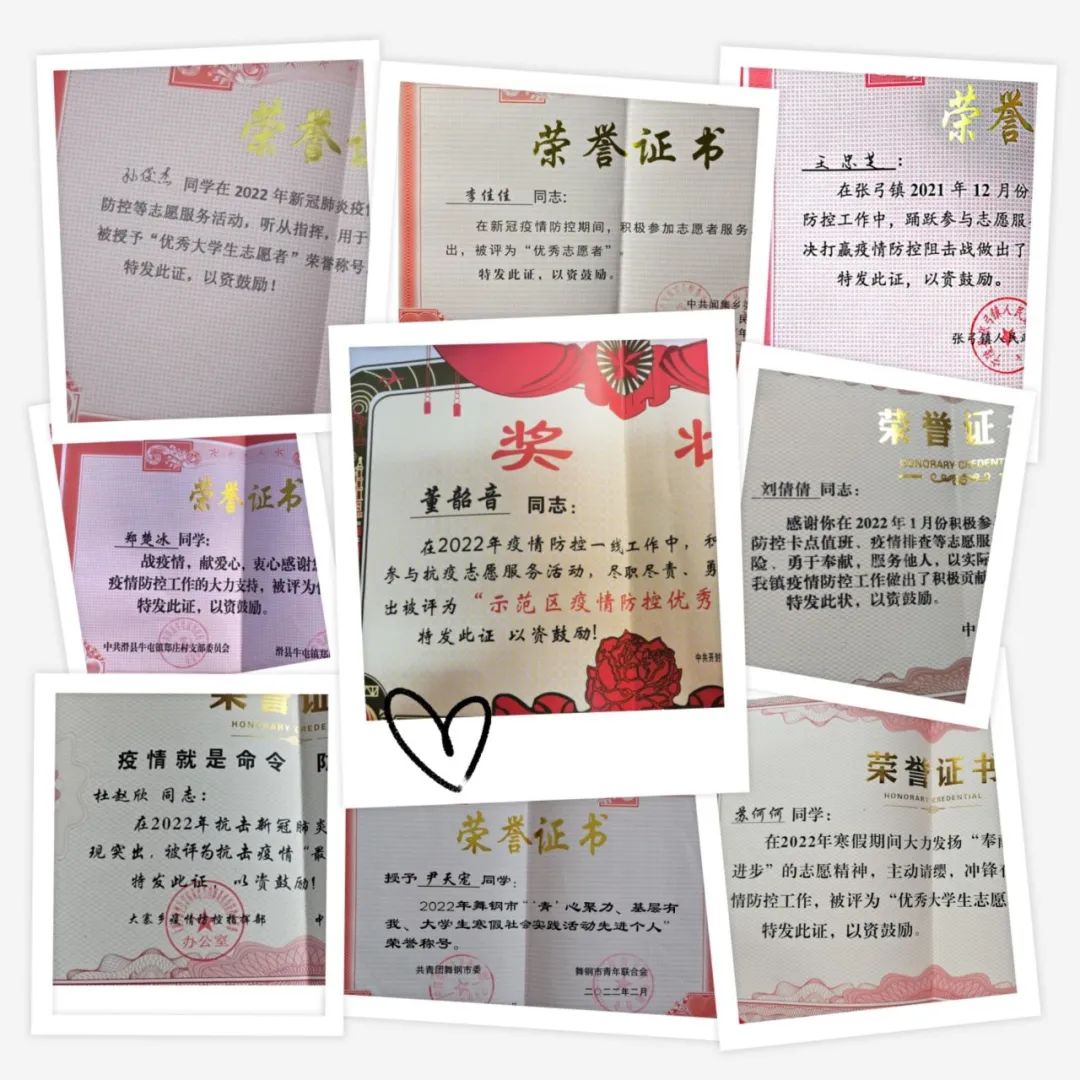 荣誉证
孙俊杰 同学在2022年新冠肺炎疫情
防控等志愿服务活动，听从指挥，用于
被授予“优秀大学生志愿者”荣誉称号
特发此证，以资鼓励！
荣誉证书
李佳佳 同志：
在新冠疫情防控期间，积极参加志愿者服务
出，被评为“优秀志愿者”。
特发此证，以资鼓励。
荣誉
王忠芝：
在张弓镇2021年12月份
防控工作中，踊跃参与志愿服
决打赢疫情防控阻击战做出了
特发此证，以资鼓励。
张弓镇人民
荣誉证书
郑楚冰 同学：
战疫情，献爱心，衷心感谢您
疫情防控工作的大力支持，被评为
特发此证，以资鼓励。
中共滑县牛屯镇郑庄村支部委员会
滑县牛屯镇郑
奖状
董韶音 同志：
在2022年疫情防控一线工作中，积
参与抗疫志愿服务活动，尽职尽责、勇
出被评为“示范区疫情防控优秀
特发此证 以资鼓励！
中共开封
荣誉证
HONORARY CREDENT
刘倩倩 同志：
感谢你在2022年1月份积极参
防控卡点值班、疫情排查等志愿服
险、勇于奉献，服务他人，以实际
我镇疫情防控工作做出了积极贡献
特发此状，以资鼓励。
中
荣誉证
HONORARY CREDE
疫情就是命令 防
杜赵欣 同志：
在2022年抗击新冠肺炎
现突出，被评为抗击疫情“最
特发此证，以资鼓励！
大寨乡疫情防控指挥部
中
办公室
荣誉证书
授予 尹天宠 同学：
2022年舞钢市“‘青’心聚力、基层有
我、大学生寒假社会实践活动先进个人”
荣誉称号。
共青团舞钢市委
舞钢市青年联合会
二〇二二年二月
荣誉证书
HONORARY CREDENTIAL
苏何何 同学：
在2022年寒假期间大力发扬“奉献
进步”的志愿精神，主动请缨，冲锋在
情防控工作，被评为“优秀大学生志愿
特发此证，以资鼓励。